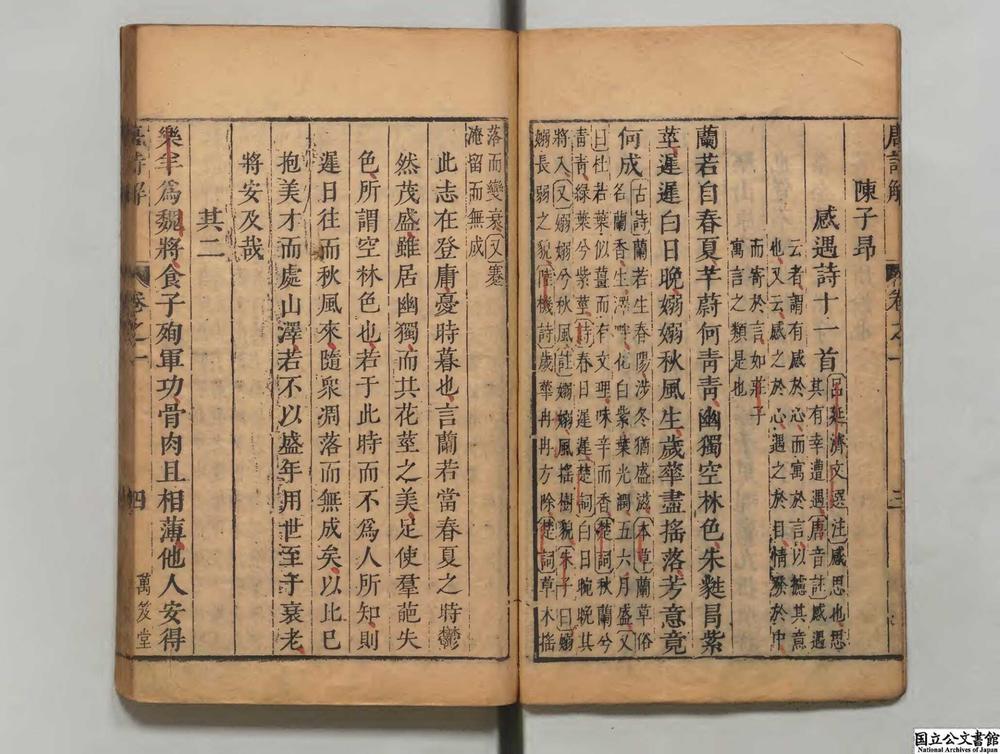 唐詩解 卷之一 三
陳子昻
感遇詩十一首
呂延濟文選注感思也思
其有幸遭遇唐音註感遇
云者謂有感於心而寓於言以攄其意
也又云感之於心遇之於目情發於中
而寄於言如莊子
寓言之類是也
蘭若自春夏芊蔚何靑靑幽獨空林色朱蕤冐紫
莖遲遲白日晚嫋嫋秋風生歲華盡搖落芳意竟
何成
古詩蘭若生春陽涉冬猶盛滋本草蘭草俗
名蘭香生澤畔花白紫葉光潤五六月盛又
曰杜若葉似薑而有文理味辛而香楚詞秋蘭兮
靑靑綠葉兮紫莖詩春日遲遲楚詞白日晼晚其
將入又嫋嫋兮秋風註嫋嫋風搖樹貌朱子曰嫋
嫋長弱之貌陸機詩歲華冉冉方除楚詞草木搖
落而變衰又蹇
淹留而無成
此志在登庸憂時暮也言蘭若當春夏之時鬱
然茂盛雖居幽獨而其花莖之美足使羣葩失
色所謂空林色也若于此時而不爲人所知則
遲日往而秋風來隨衆凋落而無成矣以比巳
抱美才而處山澤若不以盛年用世至于衰老
將安及哉
其二
樂羊爲魏將食子殉軍功骨肉且相薄他人安得
唐詩解 卷之一 四 萬笈堂
国立公文書館
National Archives of Japan